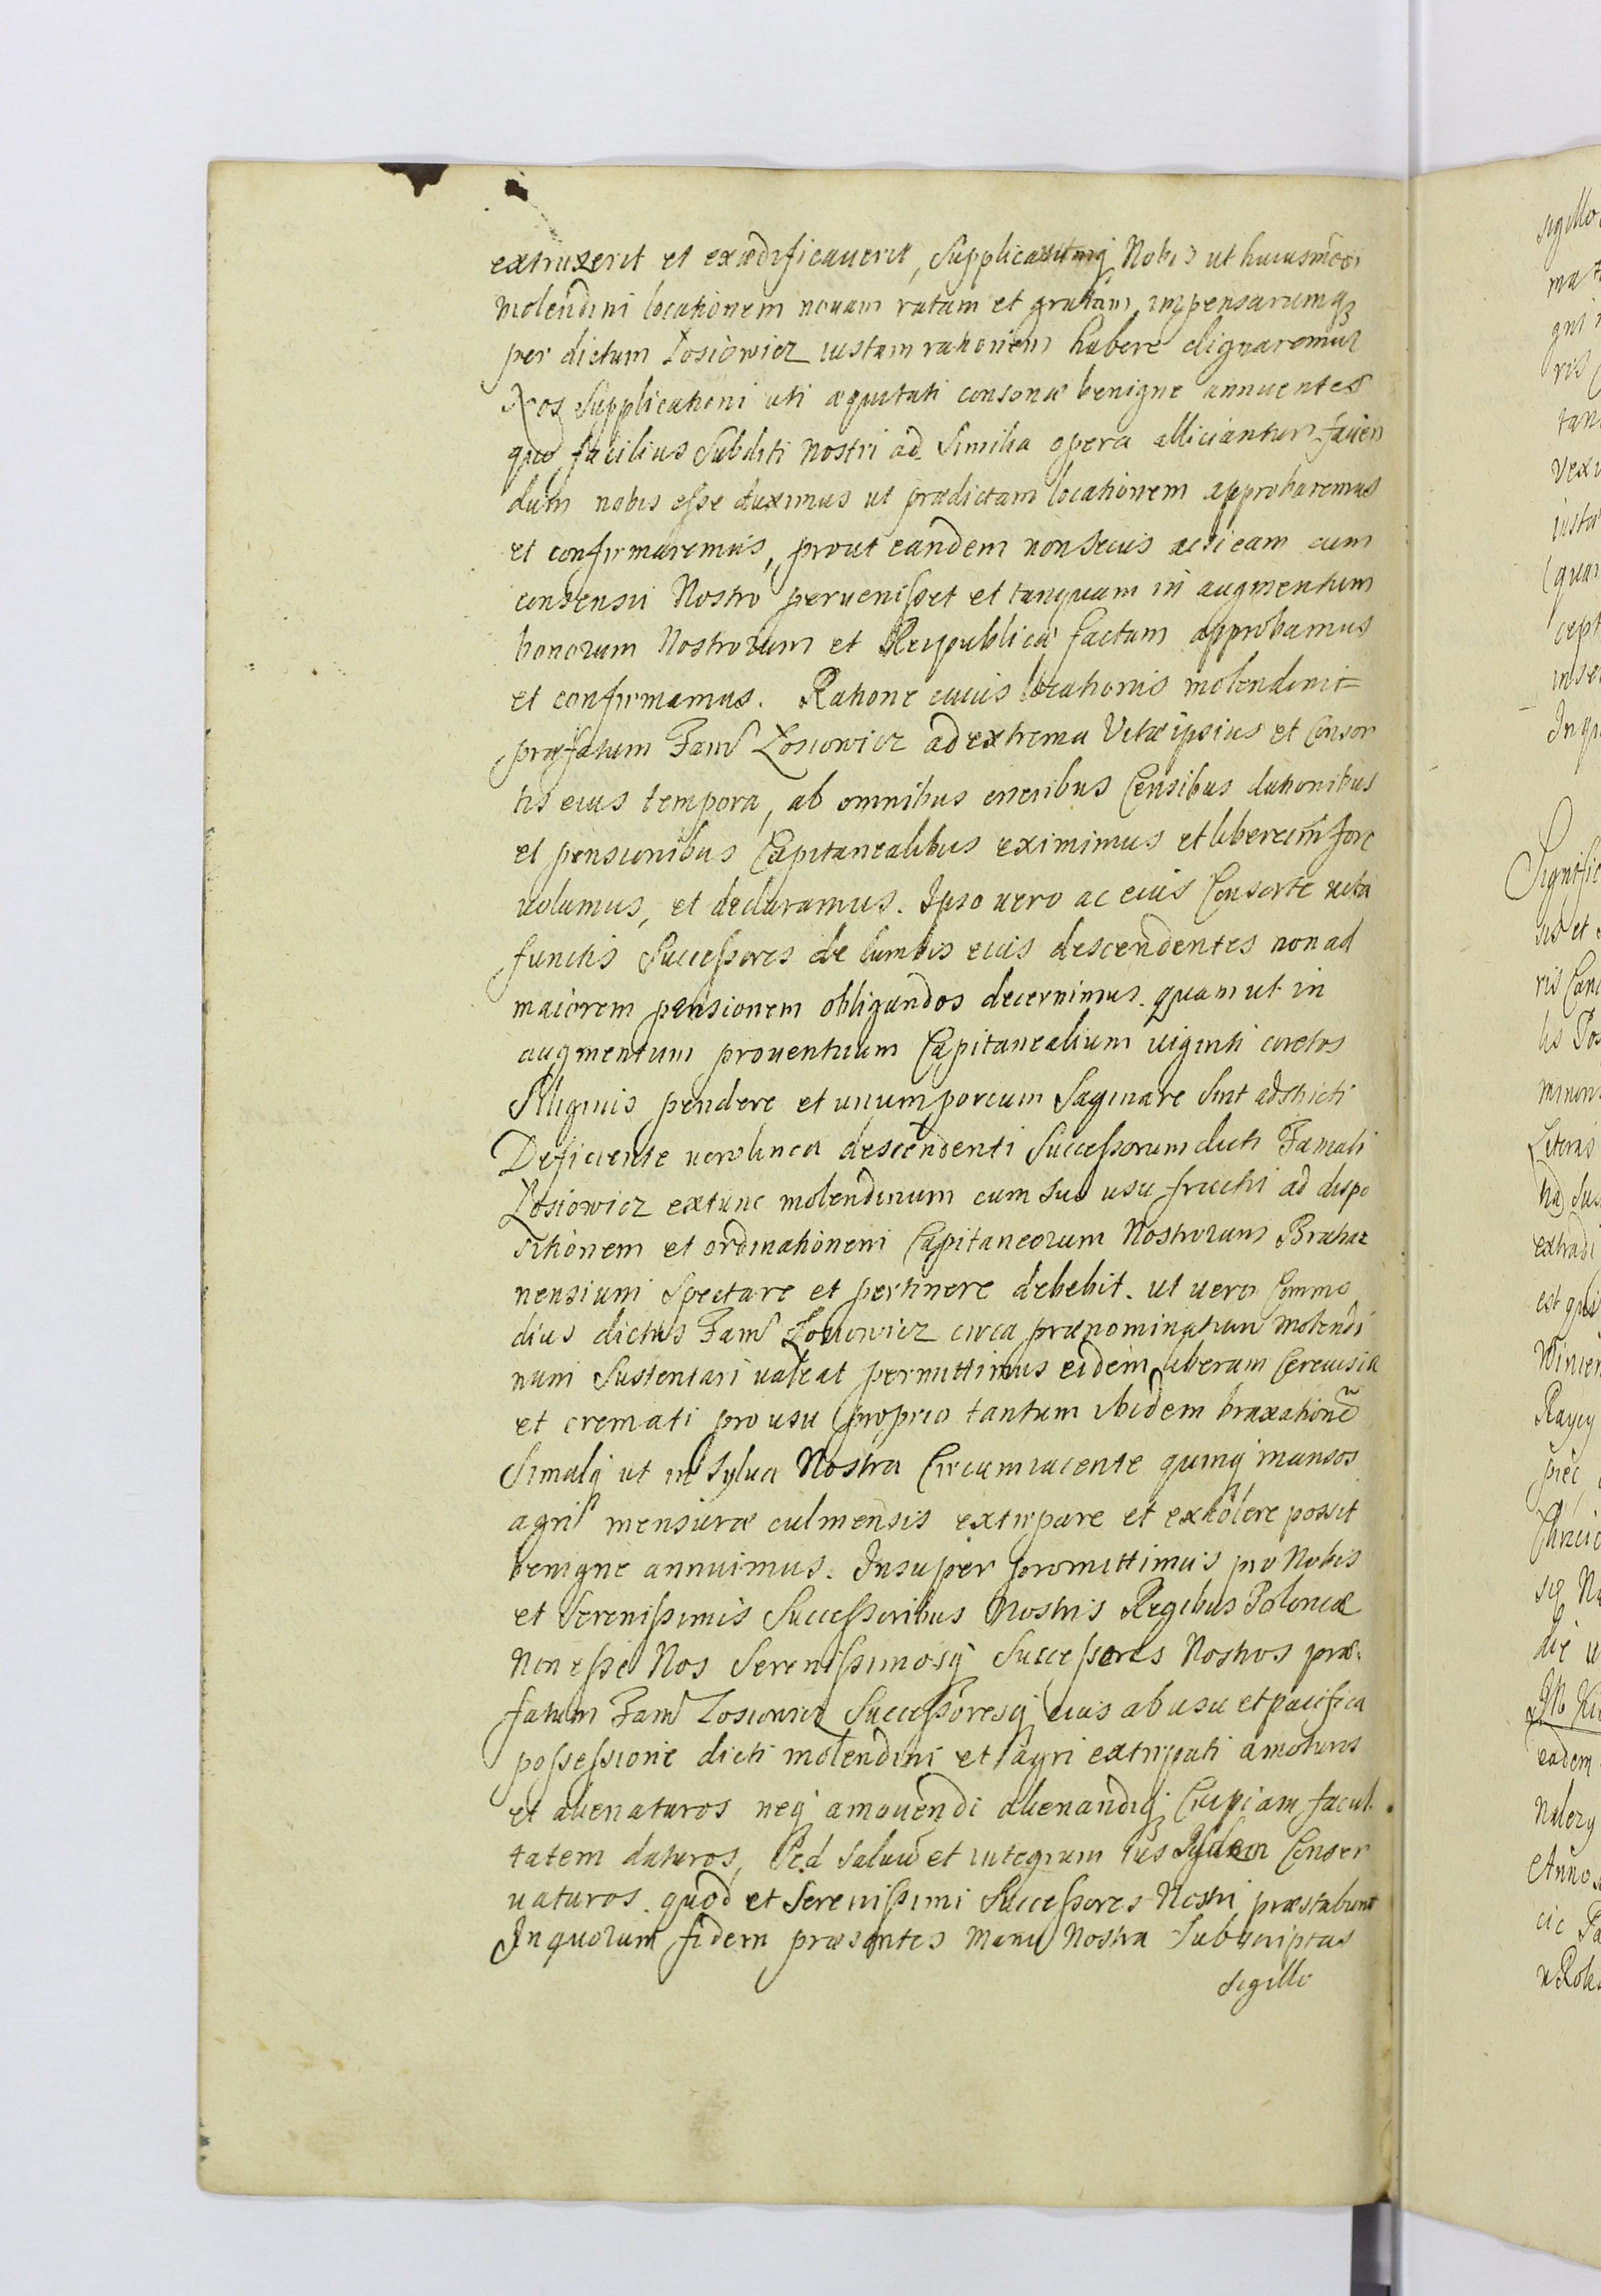 extruxerit et exædificauerit, Supplicauitq́ Nobis ut huiusmodi
molendini locationem nouam ratam et gratam, impensarumq₃
per dictum Łosiowicz iustam rationem habere dignaremur
Nos Supplicationi uti æquitati consonæ benigne annuentes
quo facilius Subditi Nostri ad Similia opera alliciantur, fauen
dum nobis eſse duximus ut prædictam locationem approbaremus
et confirmaremus, prout eandem non secus ac si eam cum
consensu Nostro perueniſset et tanquam in augmentum
bonorum Nostrorum et Reipublicæ factam approbamus
et confirmamus. Ratione cuius locationis molendini
præfatum Fam̃ Łosiowicz ad extrema Vitæ ipsius et Consor
tis eius tempora, ab omnibus oneribus Censibus dationibus
et pensionibus Capitanealibus eximimus et liberum fore
uolumus, et declaramus. Ipso uero ac eius Consorte uita
functis Succeſsores de lumbis eius descendentes non ad
maiorem pensionem obligandos decernimus. quam ut in
augmentum prouentuum Capitanealium uiginti coretos
Siliginis pendere et unum porcum Saginare Sint adstricti
Deficiente uero linea descendenti Succeſsorum dicti Famuli
Łosiowicz extunc molendinum cum suo usu fructu ad dispo
sitionem et ordinationem Capitaneorum Nostrorum Brahaz
nensium Spectare et pertinere debebit. ut uero Commo
dius dictus Fam̃ Łosiowicz circa prænominatum molendi
num Sustentari ualeat permittimus eidem liberam Cereuisiæ
et cremati pro usu proprio tantum ibidem braxationẽ
Simulq́ ut in Sylua Nostra Circumiacente quinq́ mansos
agri mensuræ culmensis extirpare et excolere possit
benigne annuimus. Insuper promittimus pro Nobis
et Sereniſsimis Succeſsoribus Nostris Regibus Poloniæ
Non eſse Nos Sereniſsimosq́ Succeſsores Nostros præ
fatum Fam̃ Łosiowicz Succeſsoresq́ eius ab usu et pacifica
poſseſsione dicti molendini et agri extirpati amoturos
et alienaturos neq́ amouendi alienandiq́ Cuipiam facul
tatem daturos, Sed saluũ et integrum ius Iisdem Conser
uaturos. quod et Sereniſsimi Succeſsores Nostri præstabunt
In quorum fidem præsentes Manu Nostra Subscriptas
sigillo